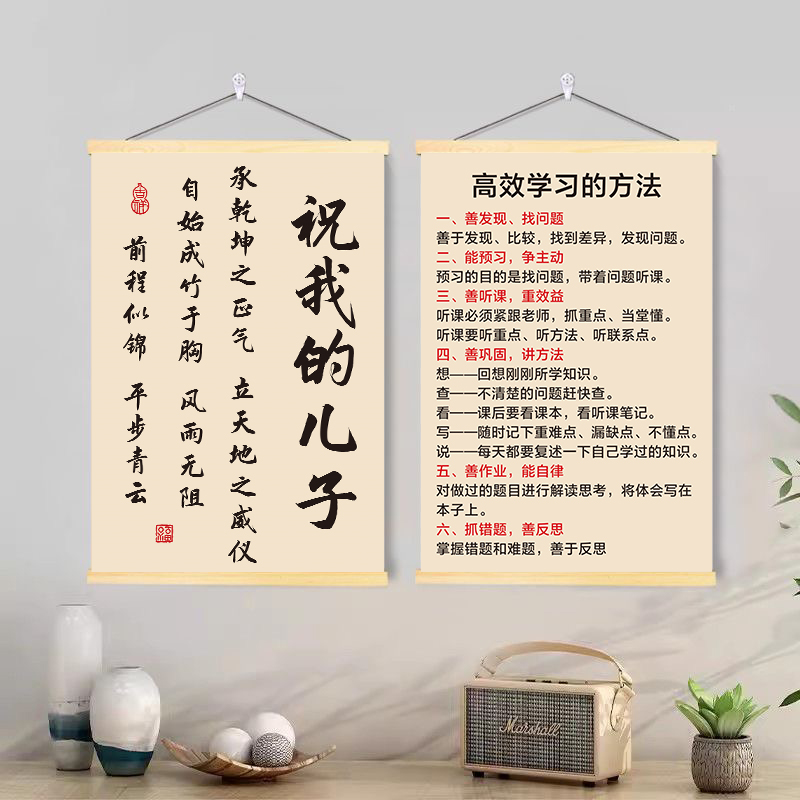 祝我的儿子
承乾坤之正气 立天地之威仪
自始成竹于胸 风雨无阻
前程似锦 平步青云
高效学习的方法
一、善发现、找问题
善于发现、比较，找到差异，发现问题。
二、能预习，争主动
预习的目的是找问题，带着问题听课。
三、善听课，重效益
听课必须紧跟老师，抓重点、当堂懂。
听课要听重点、听方法、听联系点。
四、善巩固，讲方法
想——回想刚刚所学知识。
查——不清楚的问题赶快查。
看——课后要看课本，看听课笔记。
写——随时记下重难点、漏缺点、不懂点。
说——每天都要复述一下自己学过的知识。
五、善作业，能自律
对做过的题目进行解读思考，将体会写在
本子上。
六、抓错题，善反思
掌握错题和难题，善于反思
Marshall